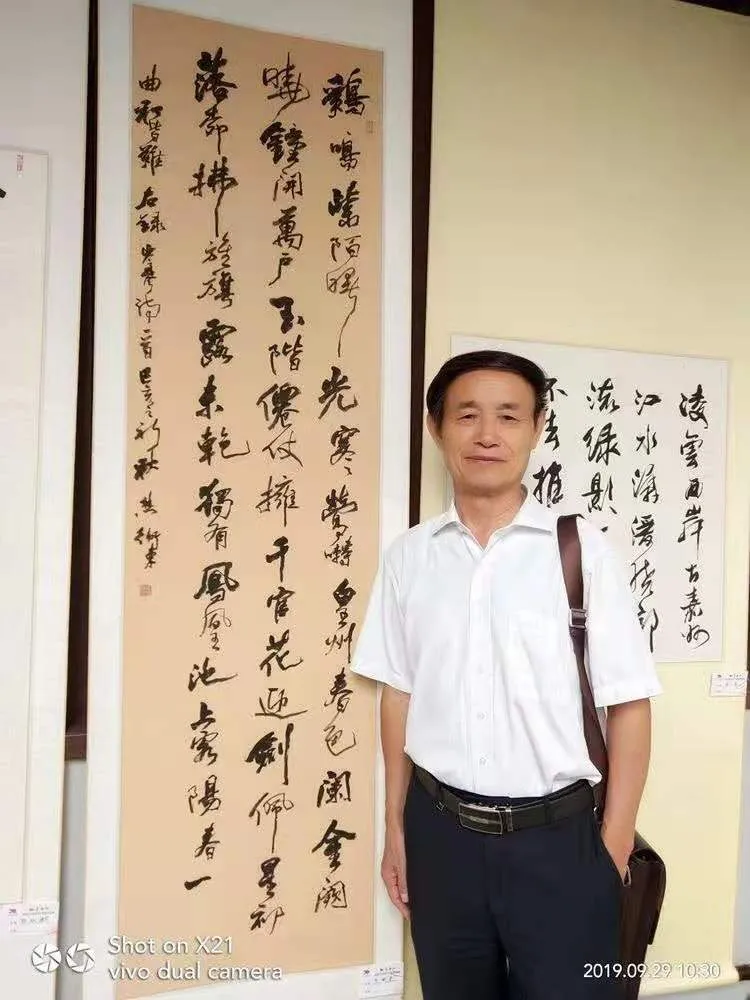 鷄鳴紫陌曙光寒鶯囀皇州春色闌金闕
曉鐘開萬戶玉階僊仗擁千官花迎劍佩星初
落柳拂旌旗露未乾獨有鳳凰池上客陽春一
曲和皆難 右録岑參詩 首 己亥之初秋
凌雲西岸古嘉州
江水潺湲繞郭
流緑影一
不去推
Shot on X21
vivo dual camera
2019.09.29 10:30